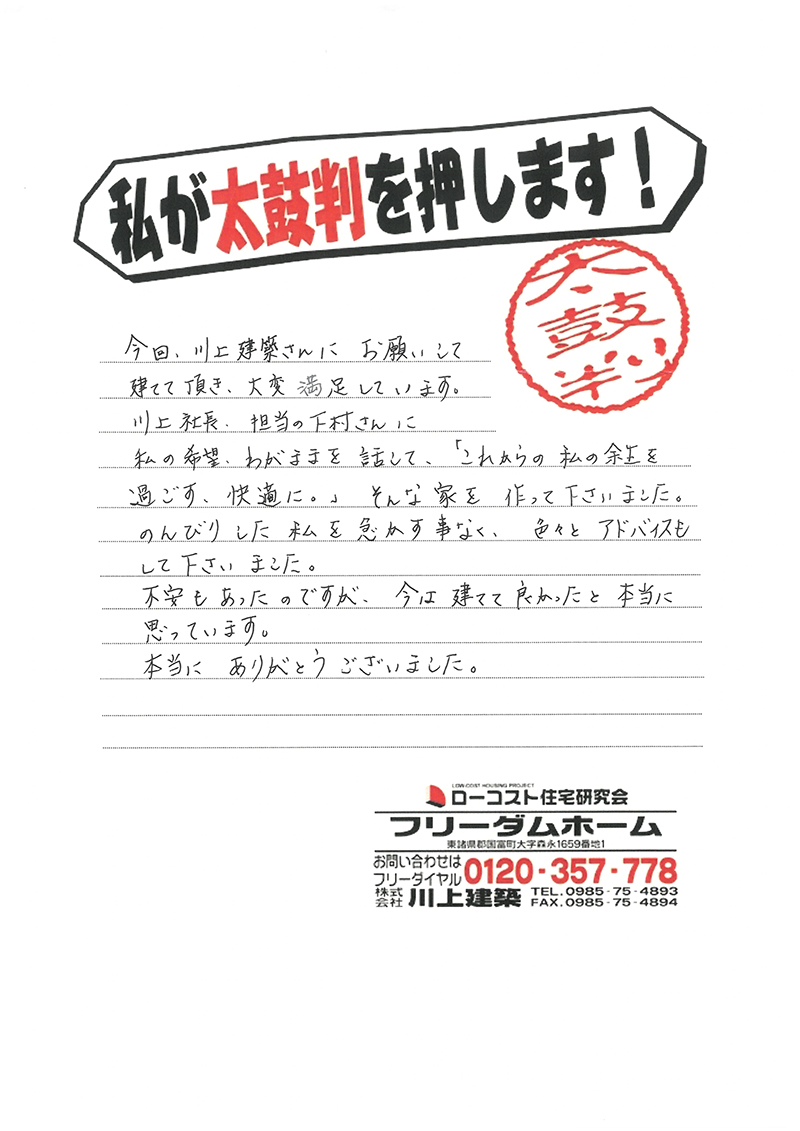 私が太鼓判を押します！
太鼓判
今回、川上建築さんに お願いして
建てて頂き、大変満足しています。
川上社長、担当の下村さんに
私の希望、わがままを話して、「これからの私の余生を
過ごす、快適に。」そんな家を作って下さいました。
のんびりした私を急かす事なく、色々とアドバイスも
して下さいました。
不安もあったのですが、今は建てて良かったと本当に
思っています。
本当に ありがとうございました。
LOW-COST HOUSING PROJECT
ローコスト住宅研究会
フリーダムホーム
東諸県郡国富町大字森永1659番地1
お問い合わせは
フリーダイヤル 0120-357-778
株式会社 川上建築 TEL.0985-75-4893
FAX.0985-75-4894